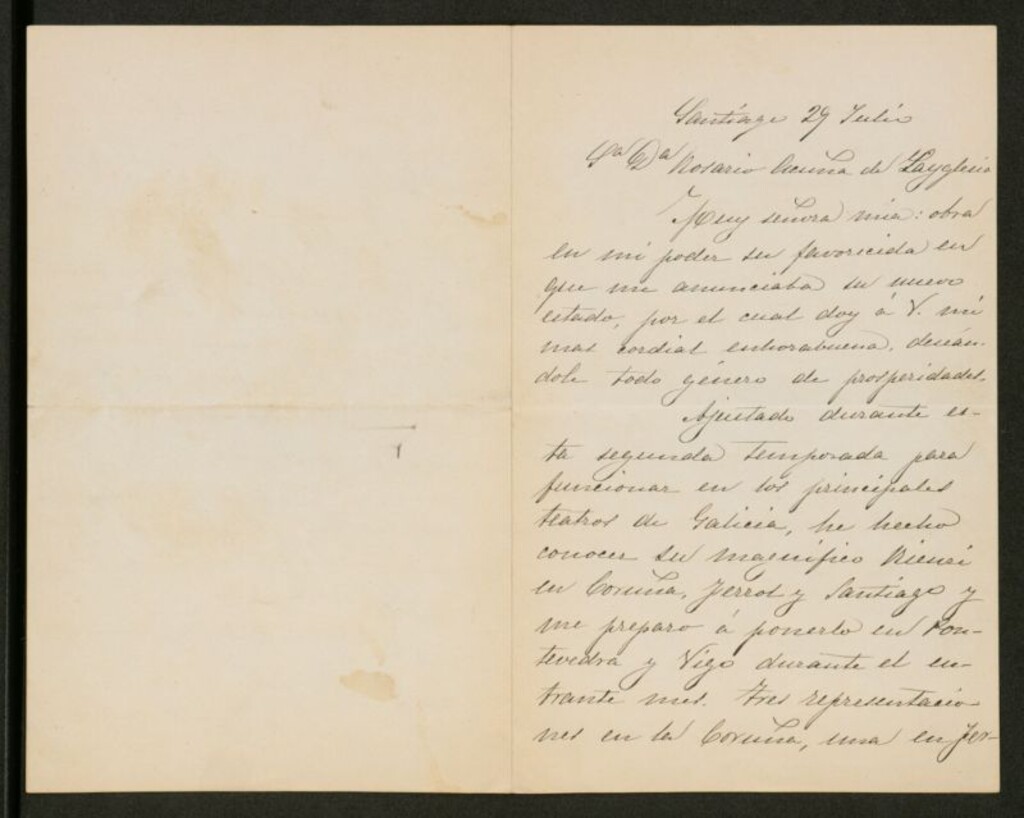 Santiago 29 Julio
Sra Da Rosario Acuña de Layglesia
Muy señora mia: obra
en mi poder su favorecida en
que me anunciaba su nuevo
estado, por el cual doy á V. mi
mas cordial enhorabuena, deseán-
dole todo género de prosperidades.
Ajustado durante es-
ta segunda temporada para
funcionar en los principales
teatros de Galicia, he hecho
conocer su magnífico Rienzi
en Coruña, Ferrol y Santiago y
me preparo á ponerlo en Pon-
tevedra y Vigo durante el en-
trante mes. Tres representacio
nes en la Coruña, una en Fer-
1